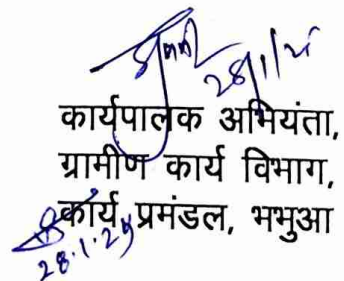 28/1/25
कार्यपालक अभियंता,
ग्रामीण कार्य विभाग,
कार्य प्रमंडल, भभुआ
28.1.25